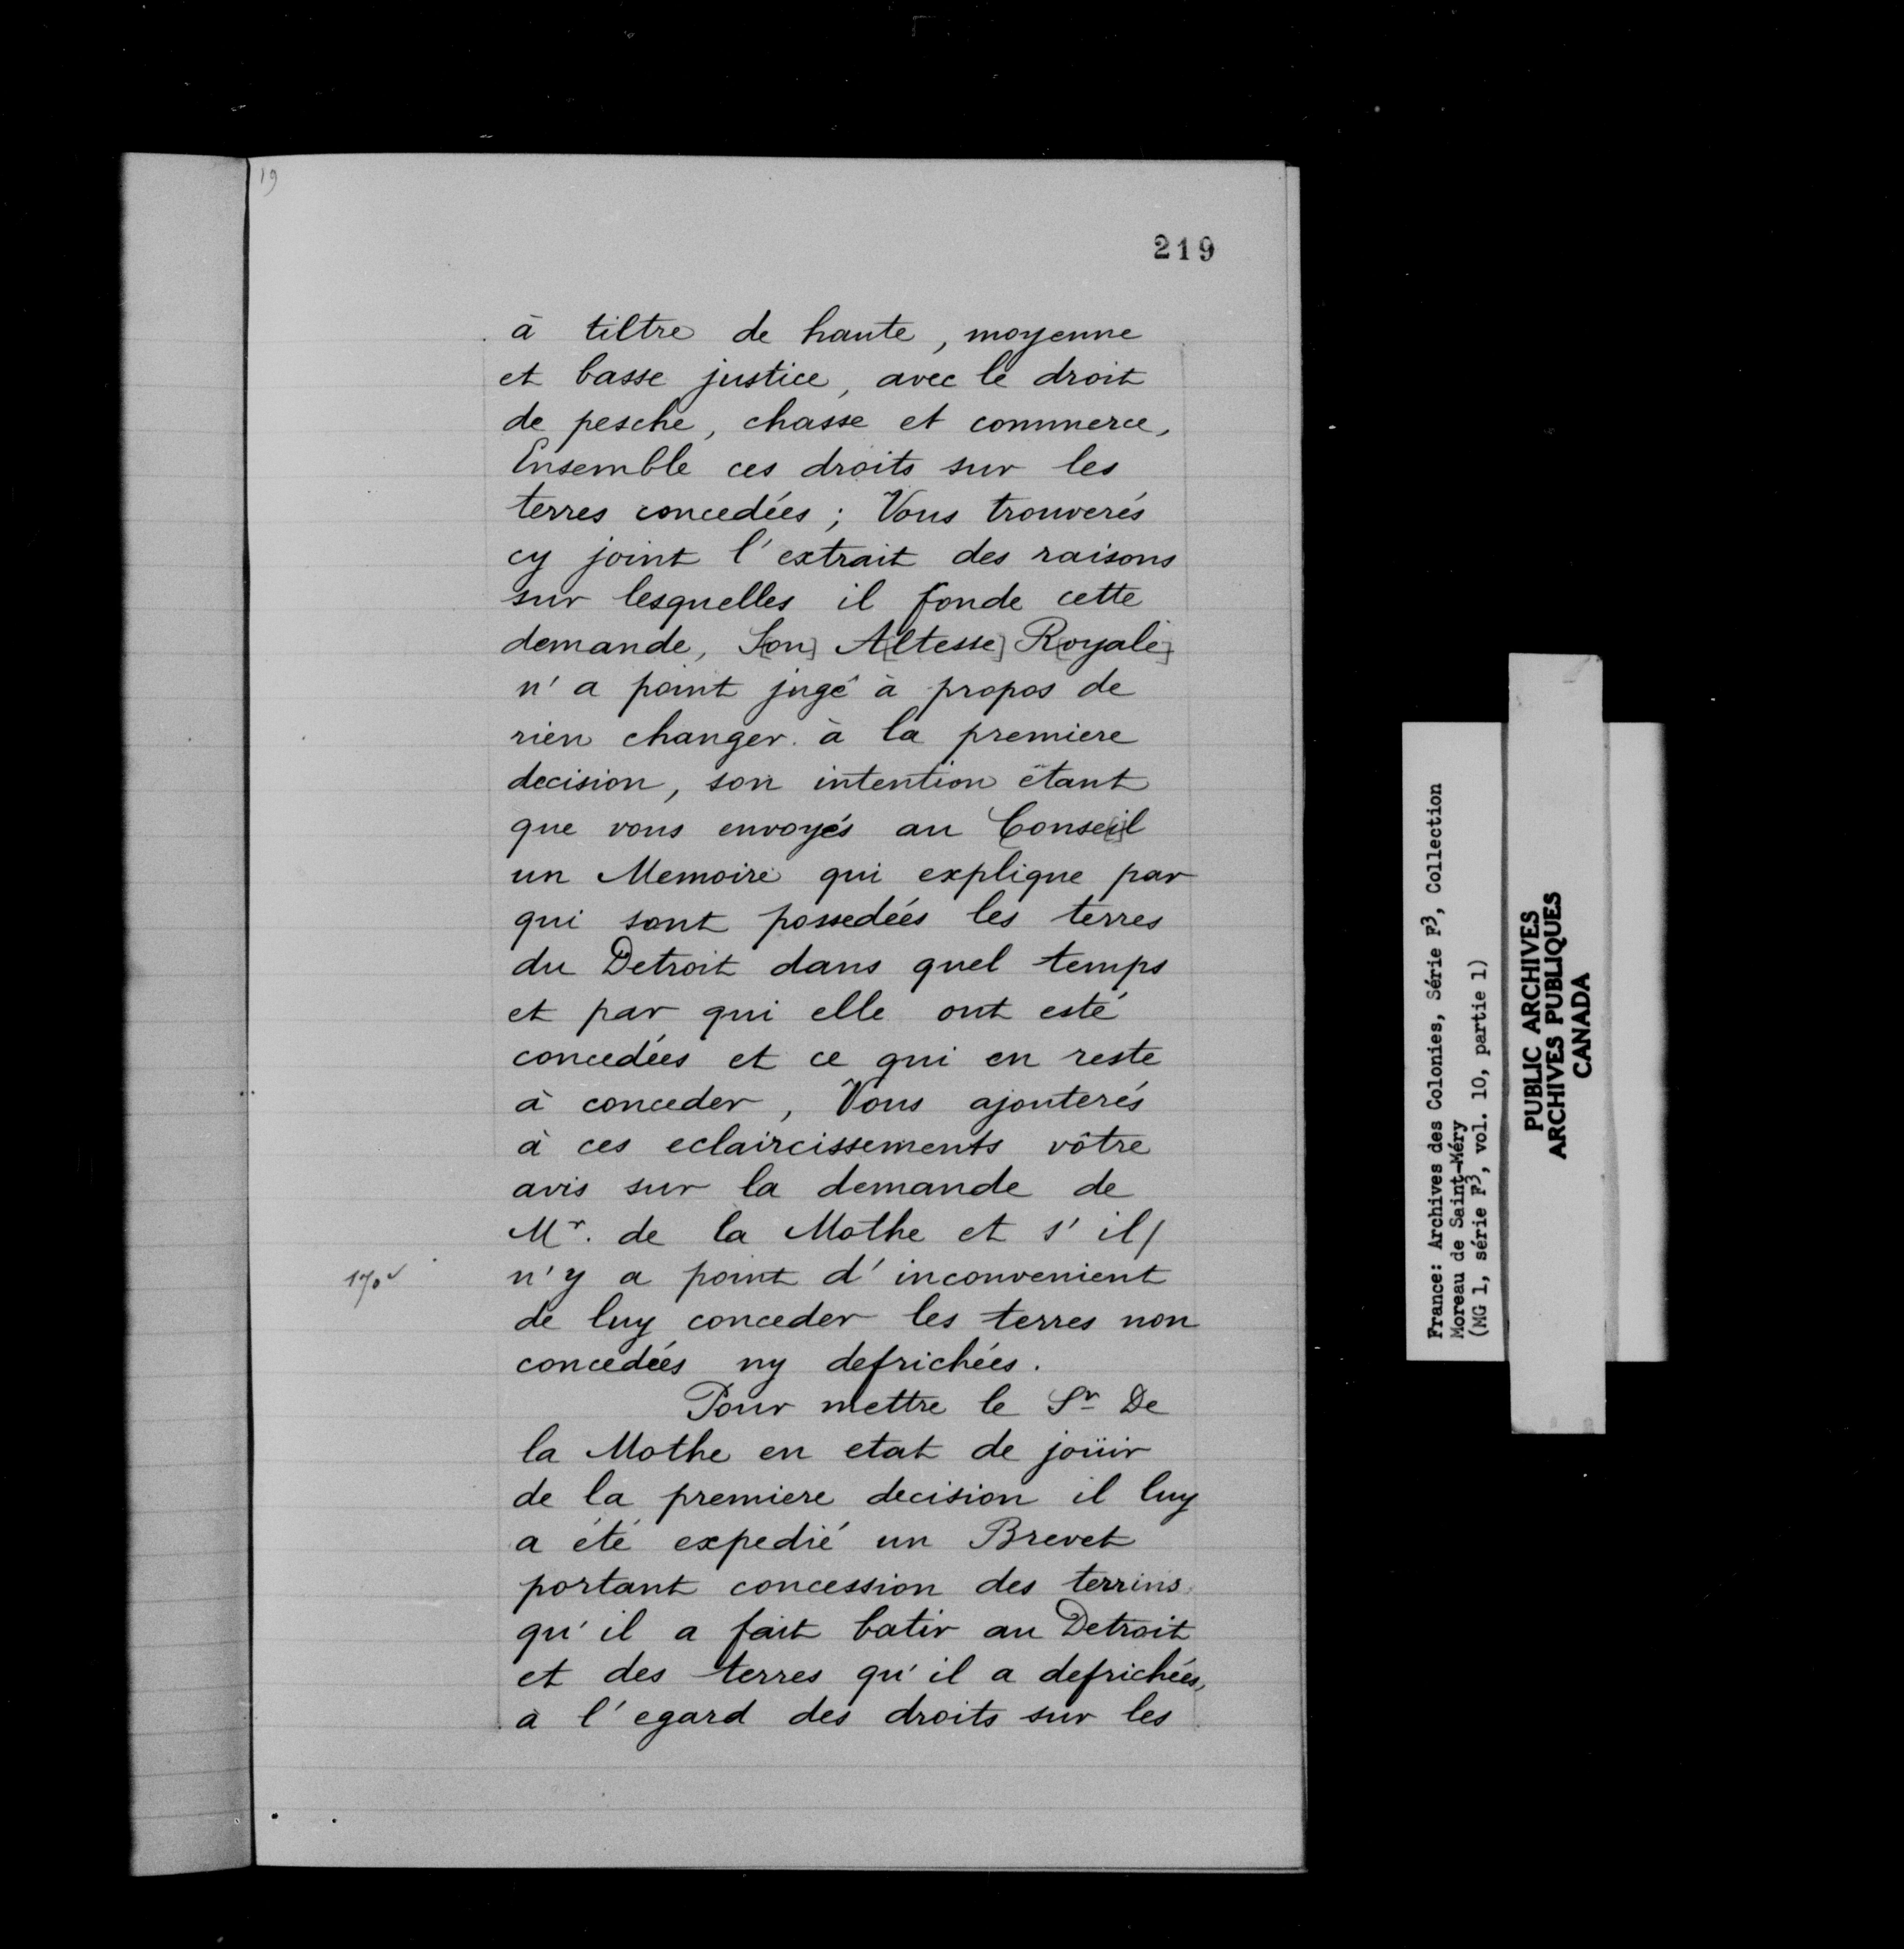 19
219
à tiltre de haute, moyenne
et basse justice, avec le droit
de pesche, chasse et commerce,
Ensemble ces droits sur les
terres concedées ; Vous trouverés
cy joint l'extrait des raisons
sur lesquelles il fonde cette
demande, S[on] A[ltesse] R[oyale]
n'a point jugé à propos de
rien changer à la premiere
decision, son intention étant
que vous envoyés au Conse[i]l
un Memoire qui explique par
qui sont possedées les terres
du Detroit dans quel temps
et par qui elle ont esté
concedées et ce qui en reste
à conceder, Vous ajouterés
à ces eclaircissements vôtre
avis sur la demande de
Mr. de la Mothe et s'il/
170v n'y a point d'inconvenient
de luy conceder les terres non
concedées ny defrichées.
Pour mettre le Sr De
la Mothe en etat de joüir
de la premiere decision il luy
a été expedié un Brevet
portant concession des terrins
qu'il a fait batir au Detroit
et des terres qu'il a defrichées,
à l'egard des droits sur les
France: Archives des Colonies, Série F3, Collection
Moreau de Saint-Méry
(MG 1, série F3, vol. 10, partie 1)
PUBLIC ARCHIVES
ARCHIVES PUBLIQUES
CANADA